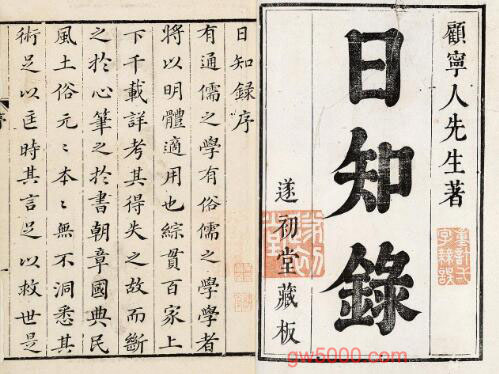 顧寧人先生著
日知錄
遂初堂藏板
日知錄序
有通儒之學有俗儒之學學者
將以明體適用也綜貫百家上
下千載詳考其得失之故而斷
之於心筆之於書朝章國典民
風土俗元〻本〻無不洞悉其
術足以匡時其言足以救世是
gw5000.com